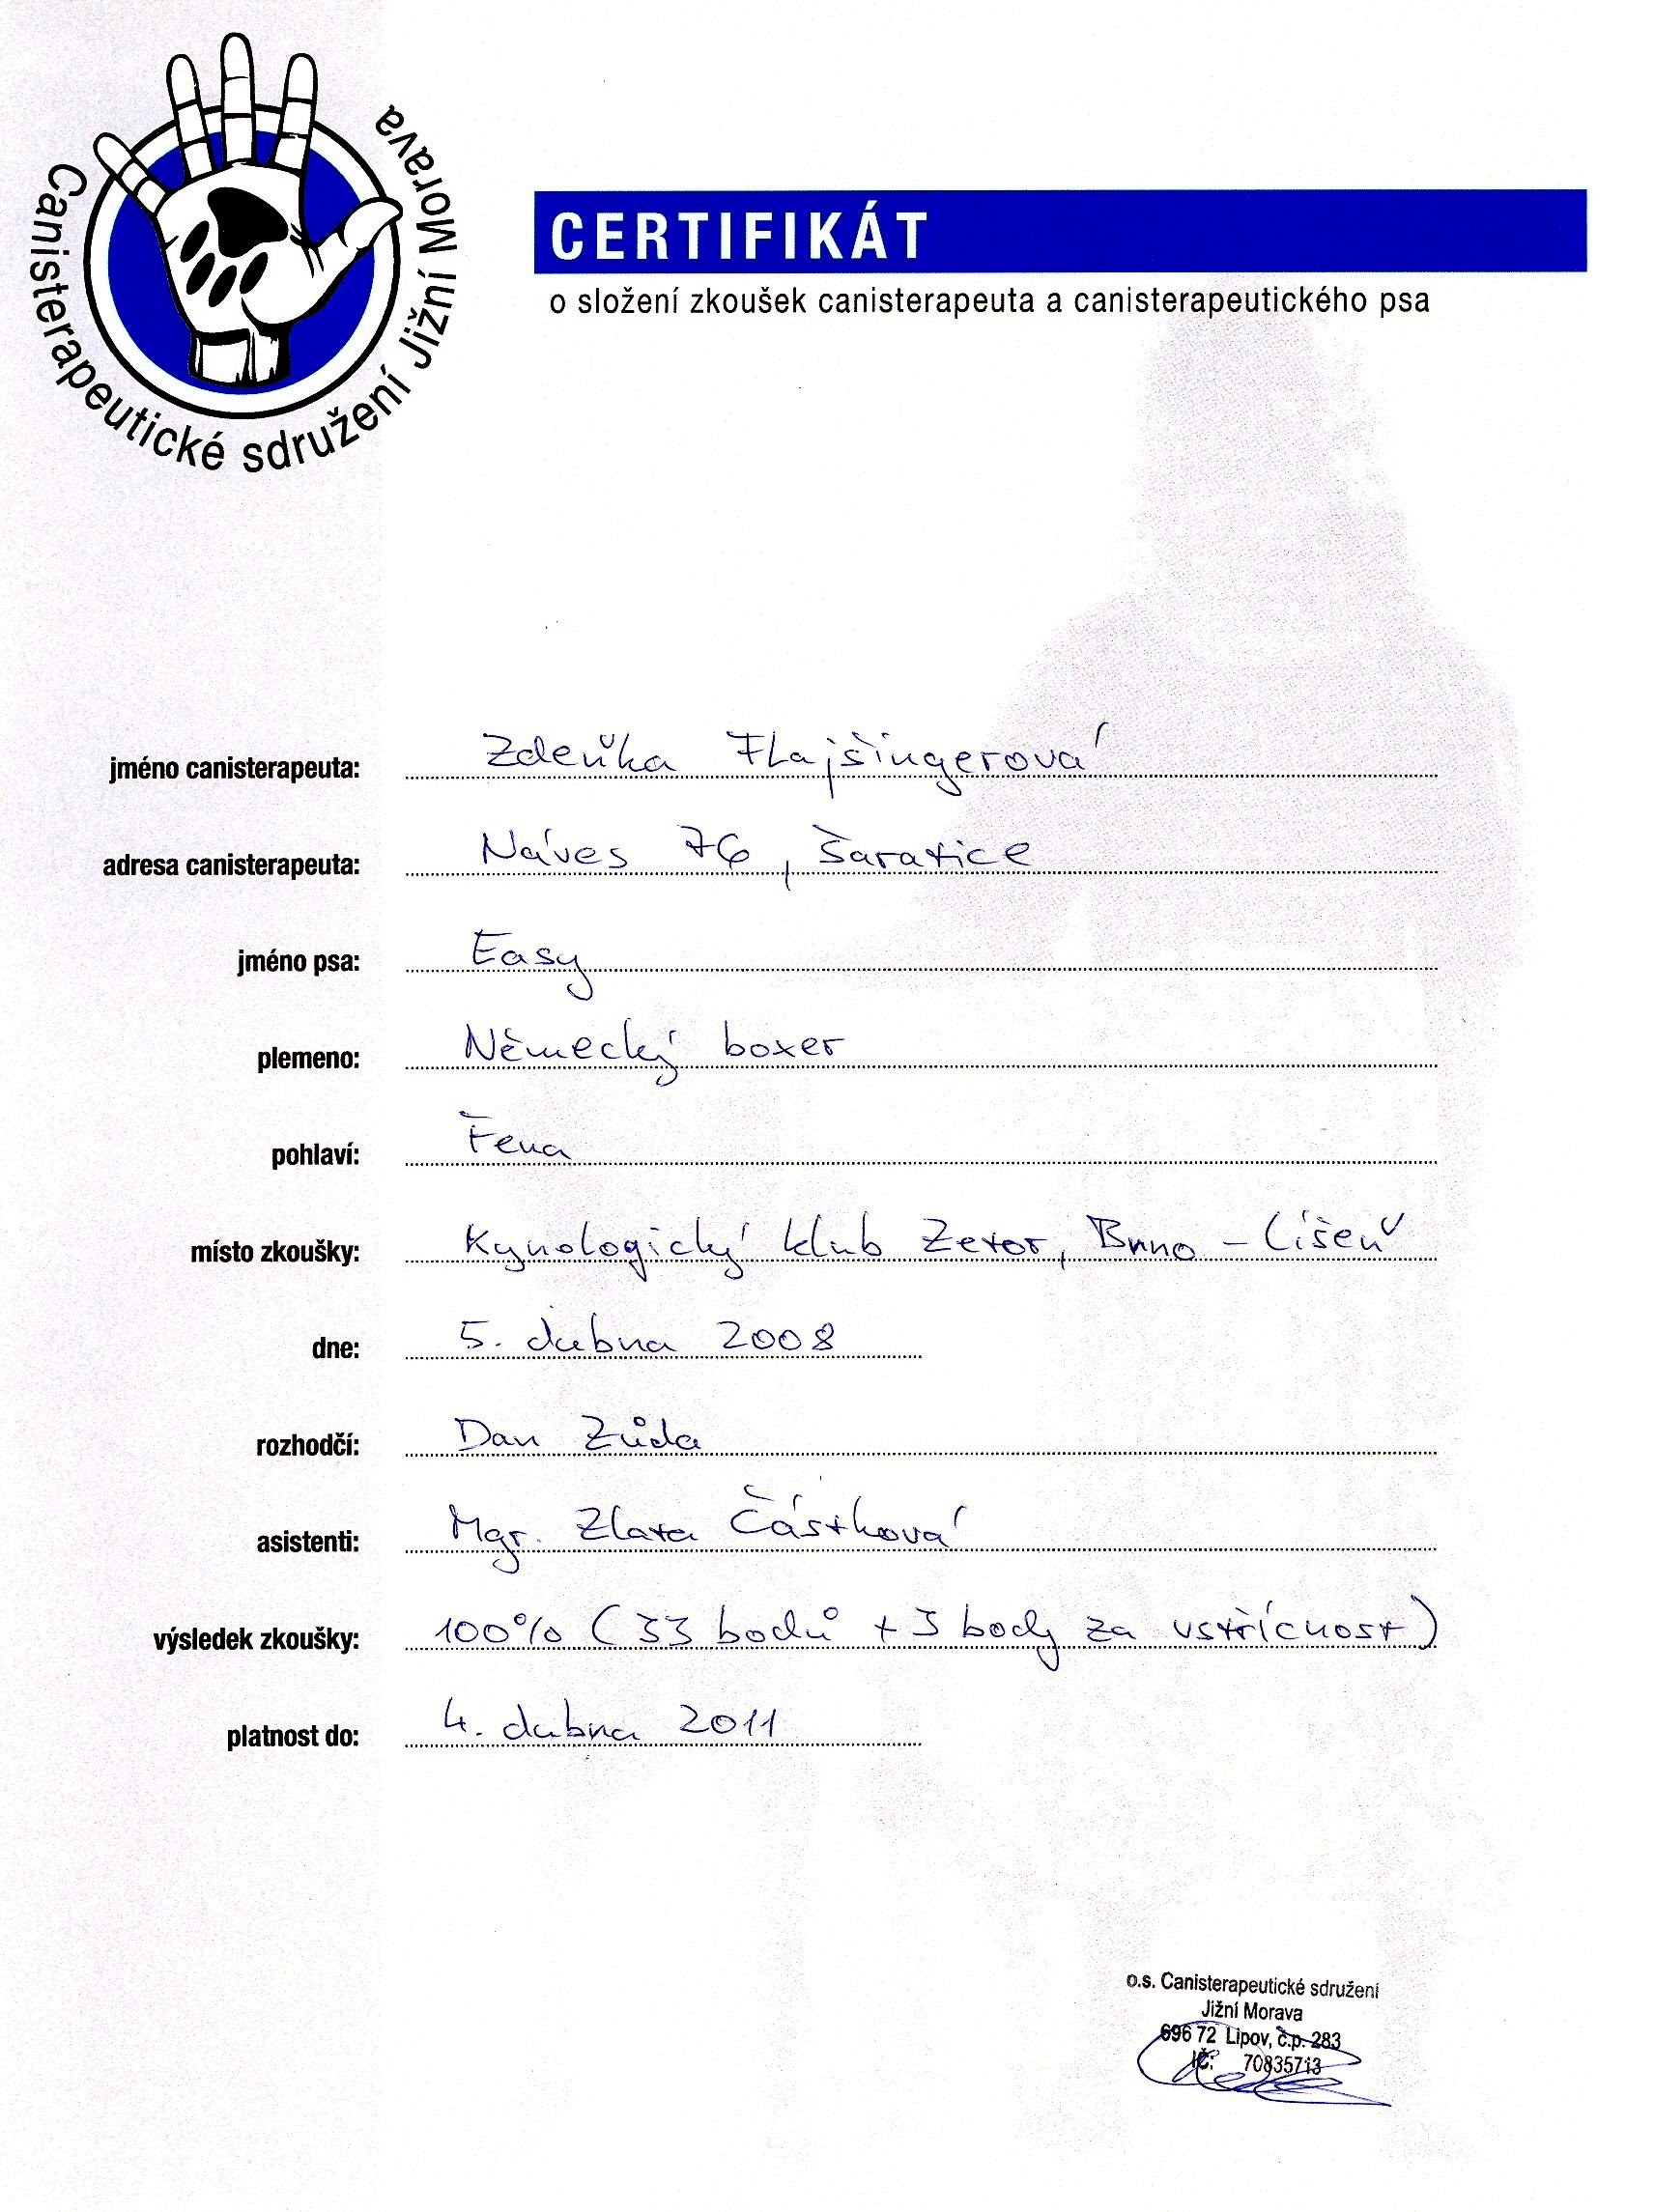 Canisterapeutické sdružení Jižní Morava
CERTIFIKÁT
o složení zkoušek canisterapeuta a canisterapeutického psa
jméno canisterapeuta: Zdeňka Flajšingerová
adresa canisterapeuta: Náves 76, Šaratice
jméno psa: Easy
plemeno: Německý boxer
pohlaví: Fena
místo zkoušky: Kynologický klub Zetor, Brno - Líšeň
dne: 5. dubna 2008
rozhodčí: Dan Zůda
asistenti: Mgr. Zlata Částková
výsledek zkoušky: 100% (33 bodů + 3 body za vstřícnost)
platnost do: 4. dubna 2011
o.s. Canisterapeutické sdružení
Jižní Morava
696 72 Lipov, č.p. 283
IČ: 70835713